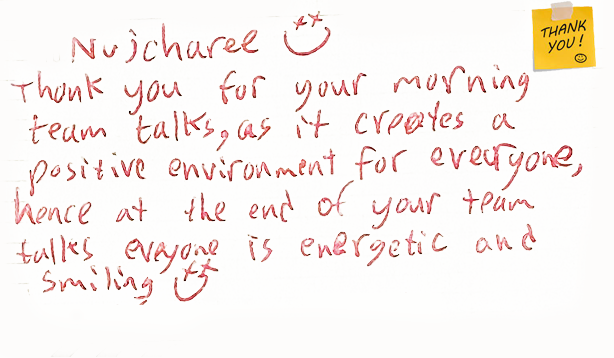 Nujcharee
THANK
YOU!
Thank you for your morning
team talks, as it creates a
positive environment for everyone,
hence at the end of your team
talks evryone is energetic and
smiling